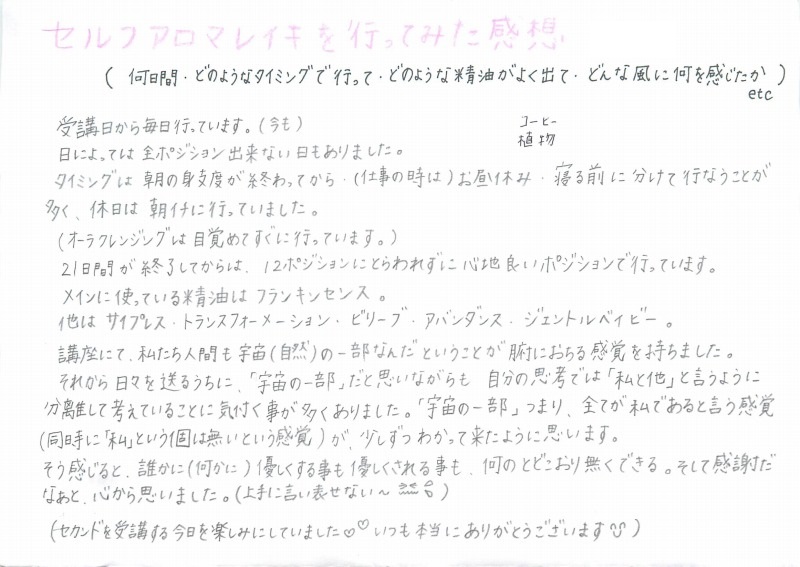 セルフアロマレイキを行ってみた感想
(何日間・どのようなタイミングで行って・どのような精油がよく出て・どんな風に何を感じたか etc)
受講日から毎日行っています。(今も)
コーヒー
植物
日によっては全ポジション出来ない日もありました。
タイミングは朝の身支度が終わってから・(仕事の時は)お昼休み・寝る前に分けて行なうことが
多く、休日は朝イチに行っていました。
(オーラクレンジングは目覚めてすぐに行っています。)
21日間が終了してからは、12ポジションにとらわれずに心地良いポジションで行っています。
メインに使っている精油はフランキンセンス。
他はサイプレス・トランスフォーメーション・ビリーブ・アバンダンス・ジェントルベイビー。
講座にて、私たち人間も宇宙(自然)の一部なんだということが腑におちる感覚を持ちました。
それから日々を送るうちに、「宇宙の一部」だと思いながらも 自分の思考では「私と他」と言うように
分離して考えていることに気付く事が多くありました。「宇宙の一部」つまり、全てが私であると言う感覚
(同時に「私」という個は無いという感覚)が、少しずつわかって来たように思います。
そう感じると、誰かに(何かに)優しくする事も優しくされる事も、何のとどこおり無くできる。そして感謝だ
なぁと、心から思いました。(上手に言い表せない〜)
(セカンドを受講する今日を楽しみにしていました♡♡いつも本当にありがとうございます)